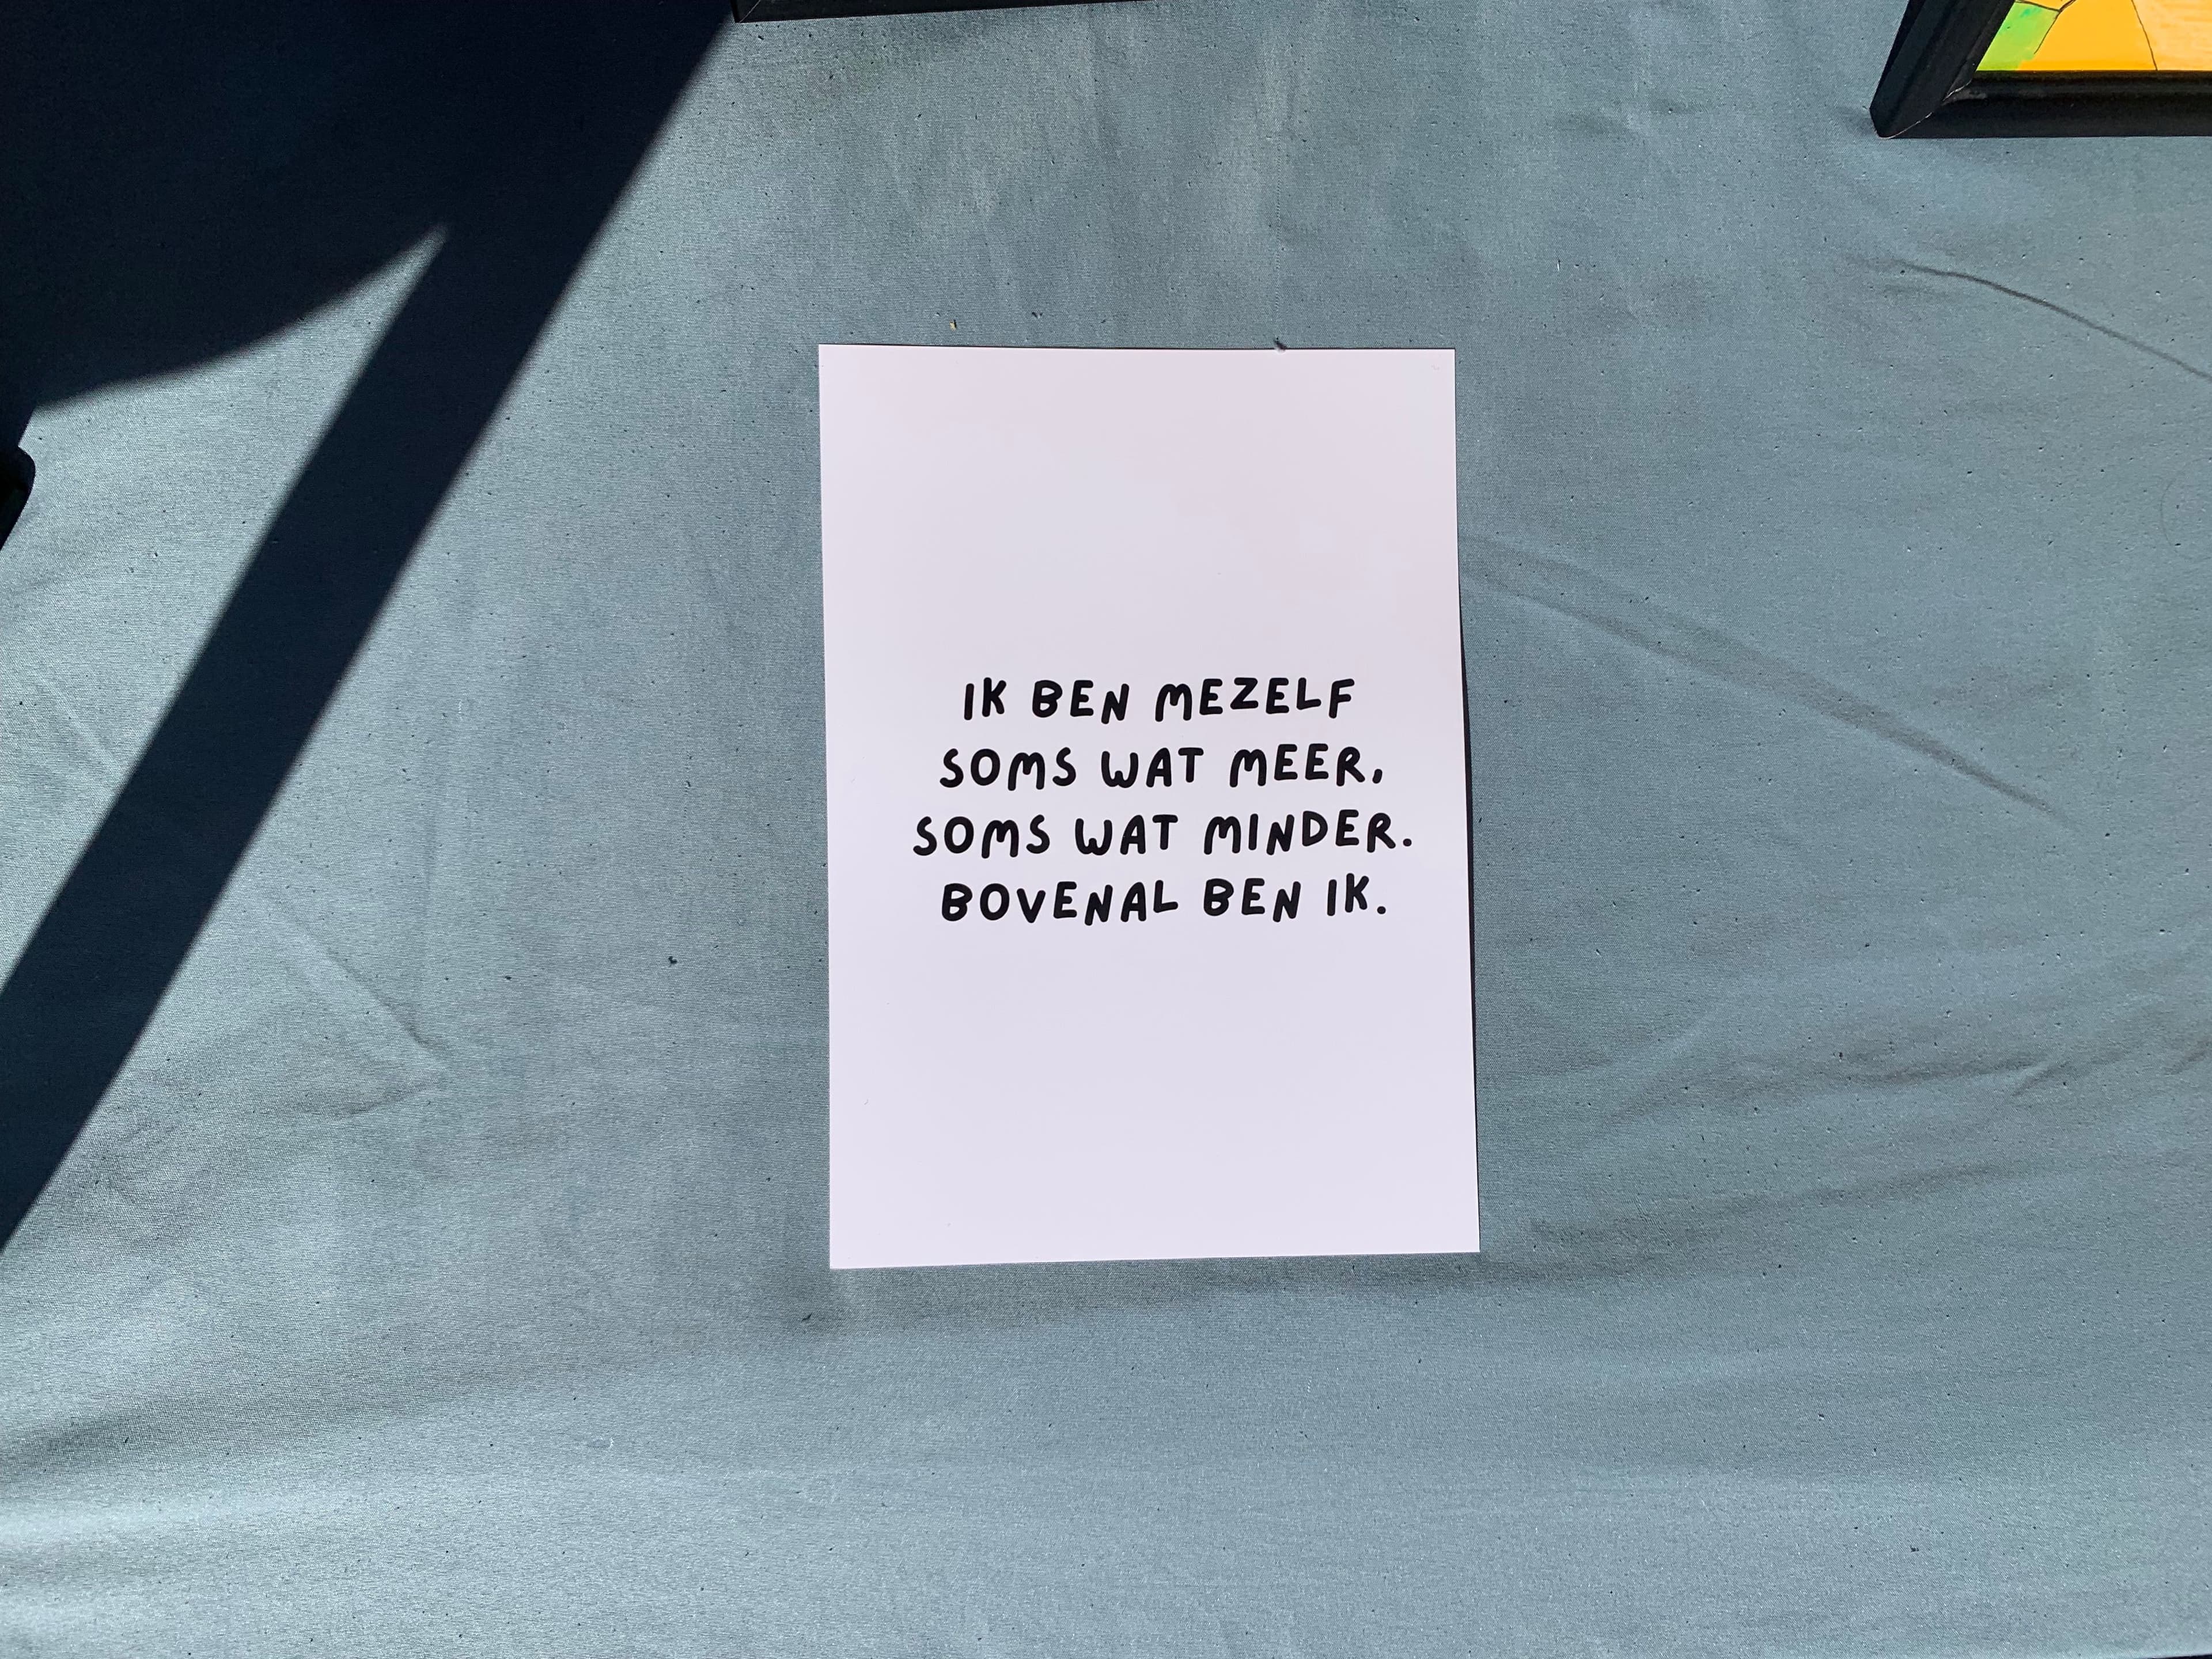 IK BEN MEZELF
SOMS WAT MEER,
SOMS WAT MINDER.
BOVENAL BEN IK.